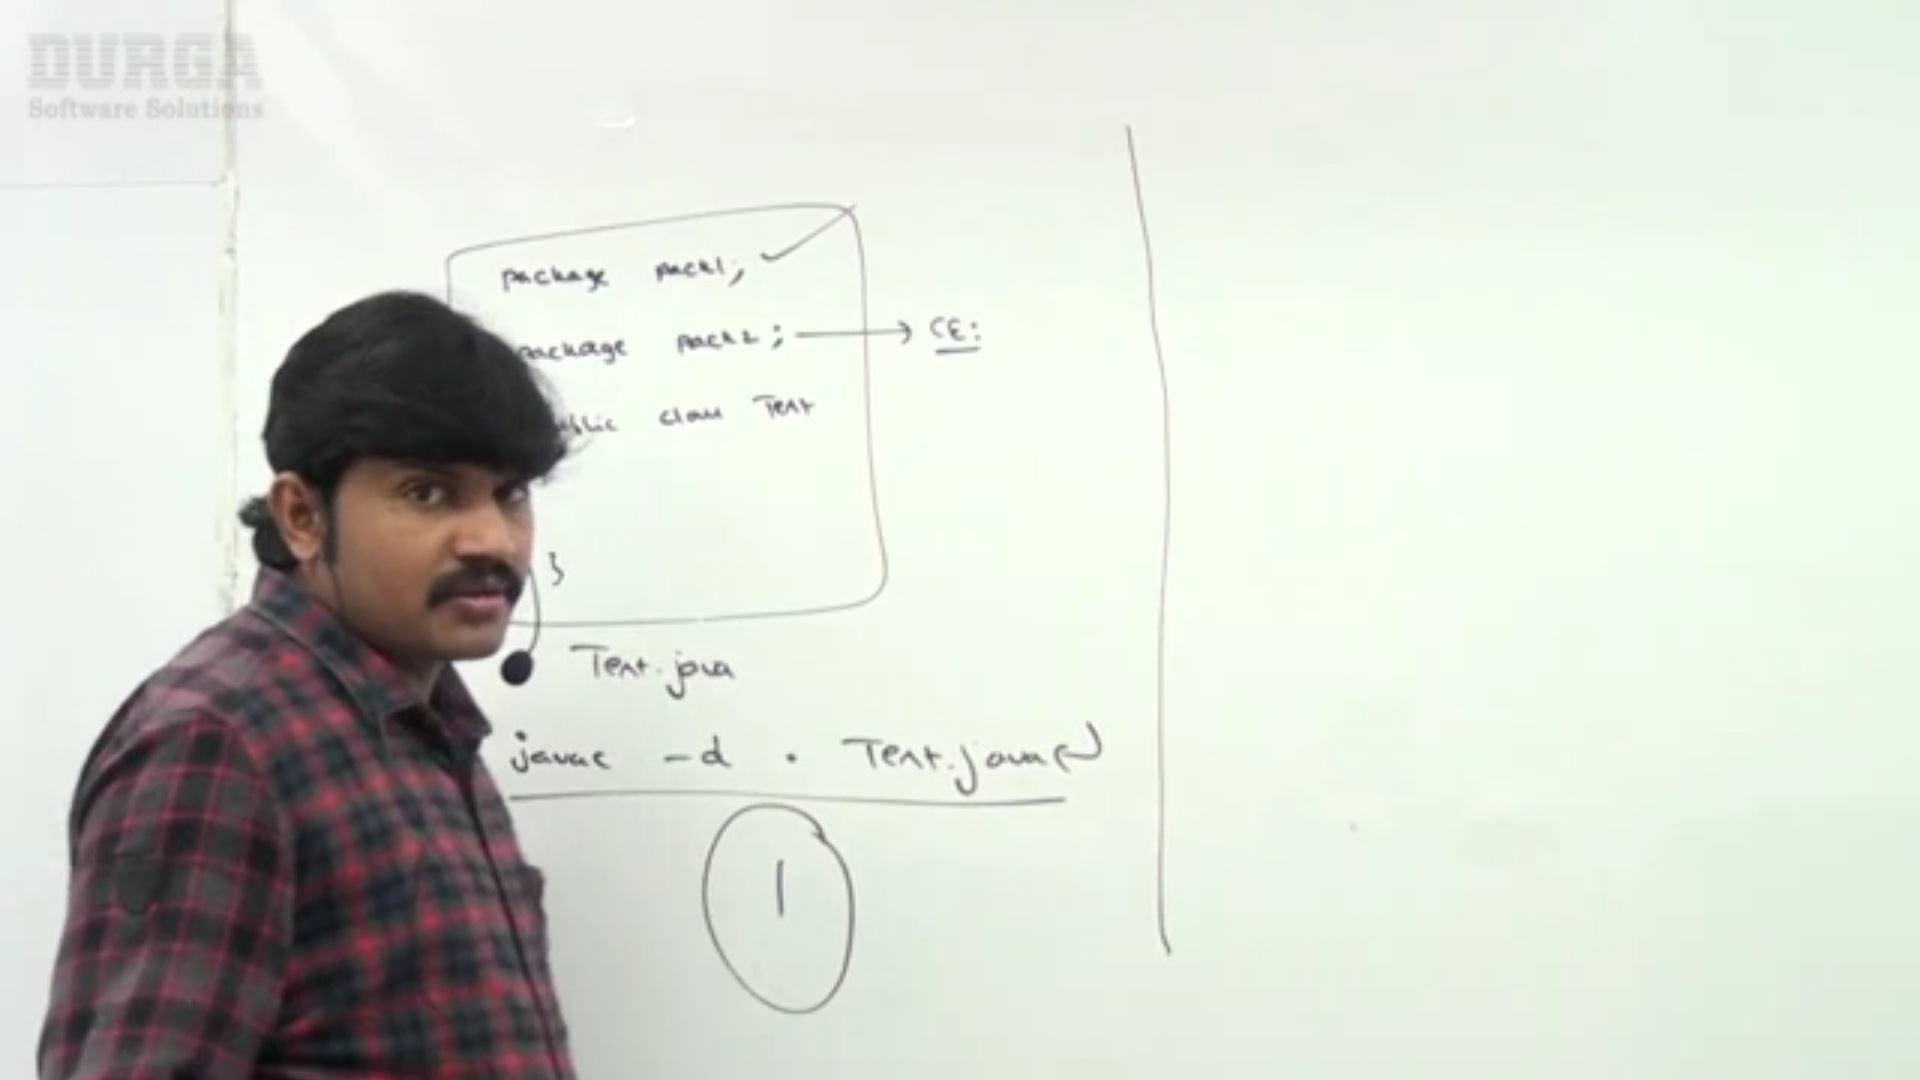 DURGA
Software Solutions
package pack1;
package pack2; CE:
public class Test
}
Test.java
javac -d . Test.java
1